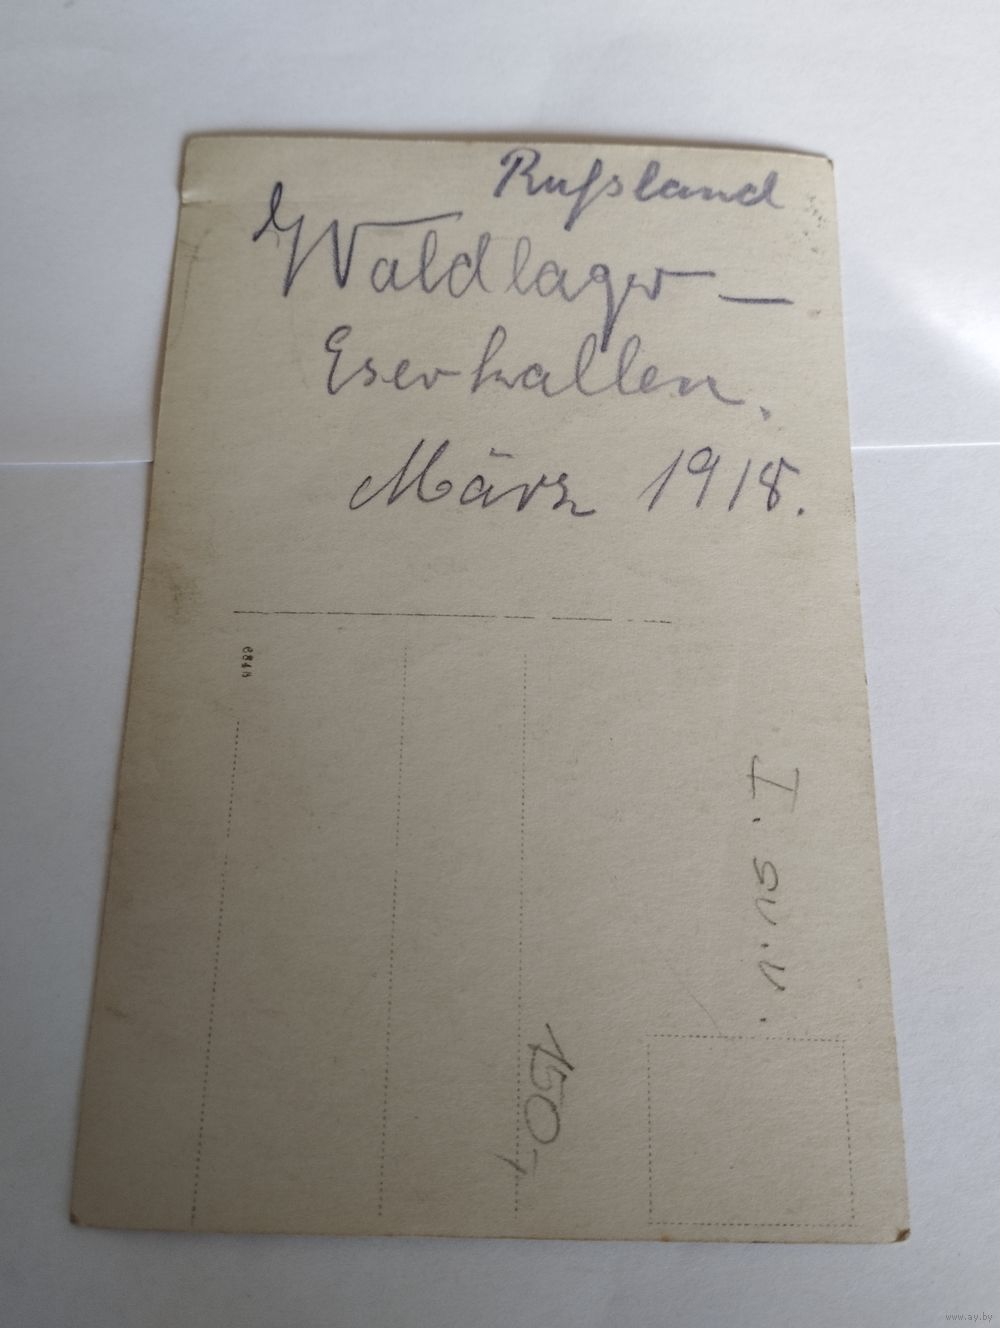 Rußland
Waldlager —
Eserhallen.
März 1918.
6841
I. GU.V.
150,-
www.ay.by